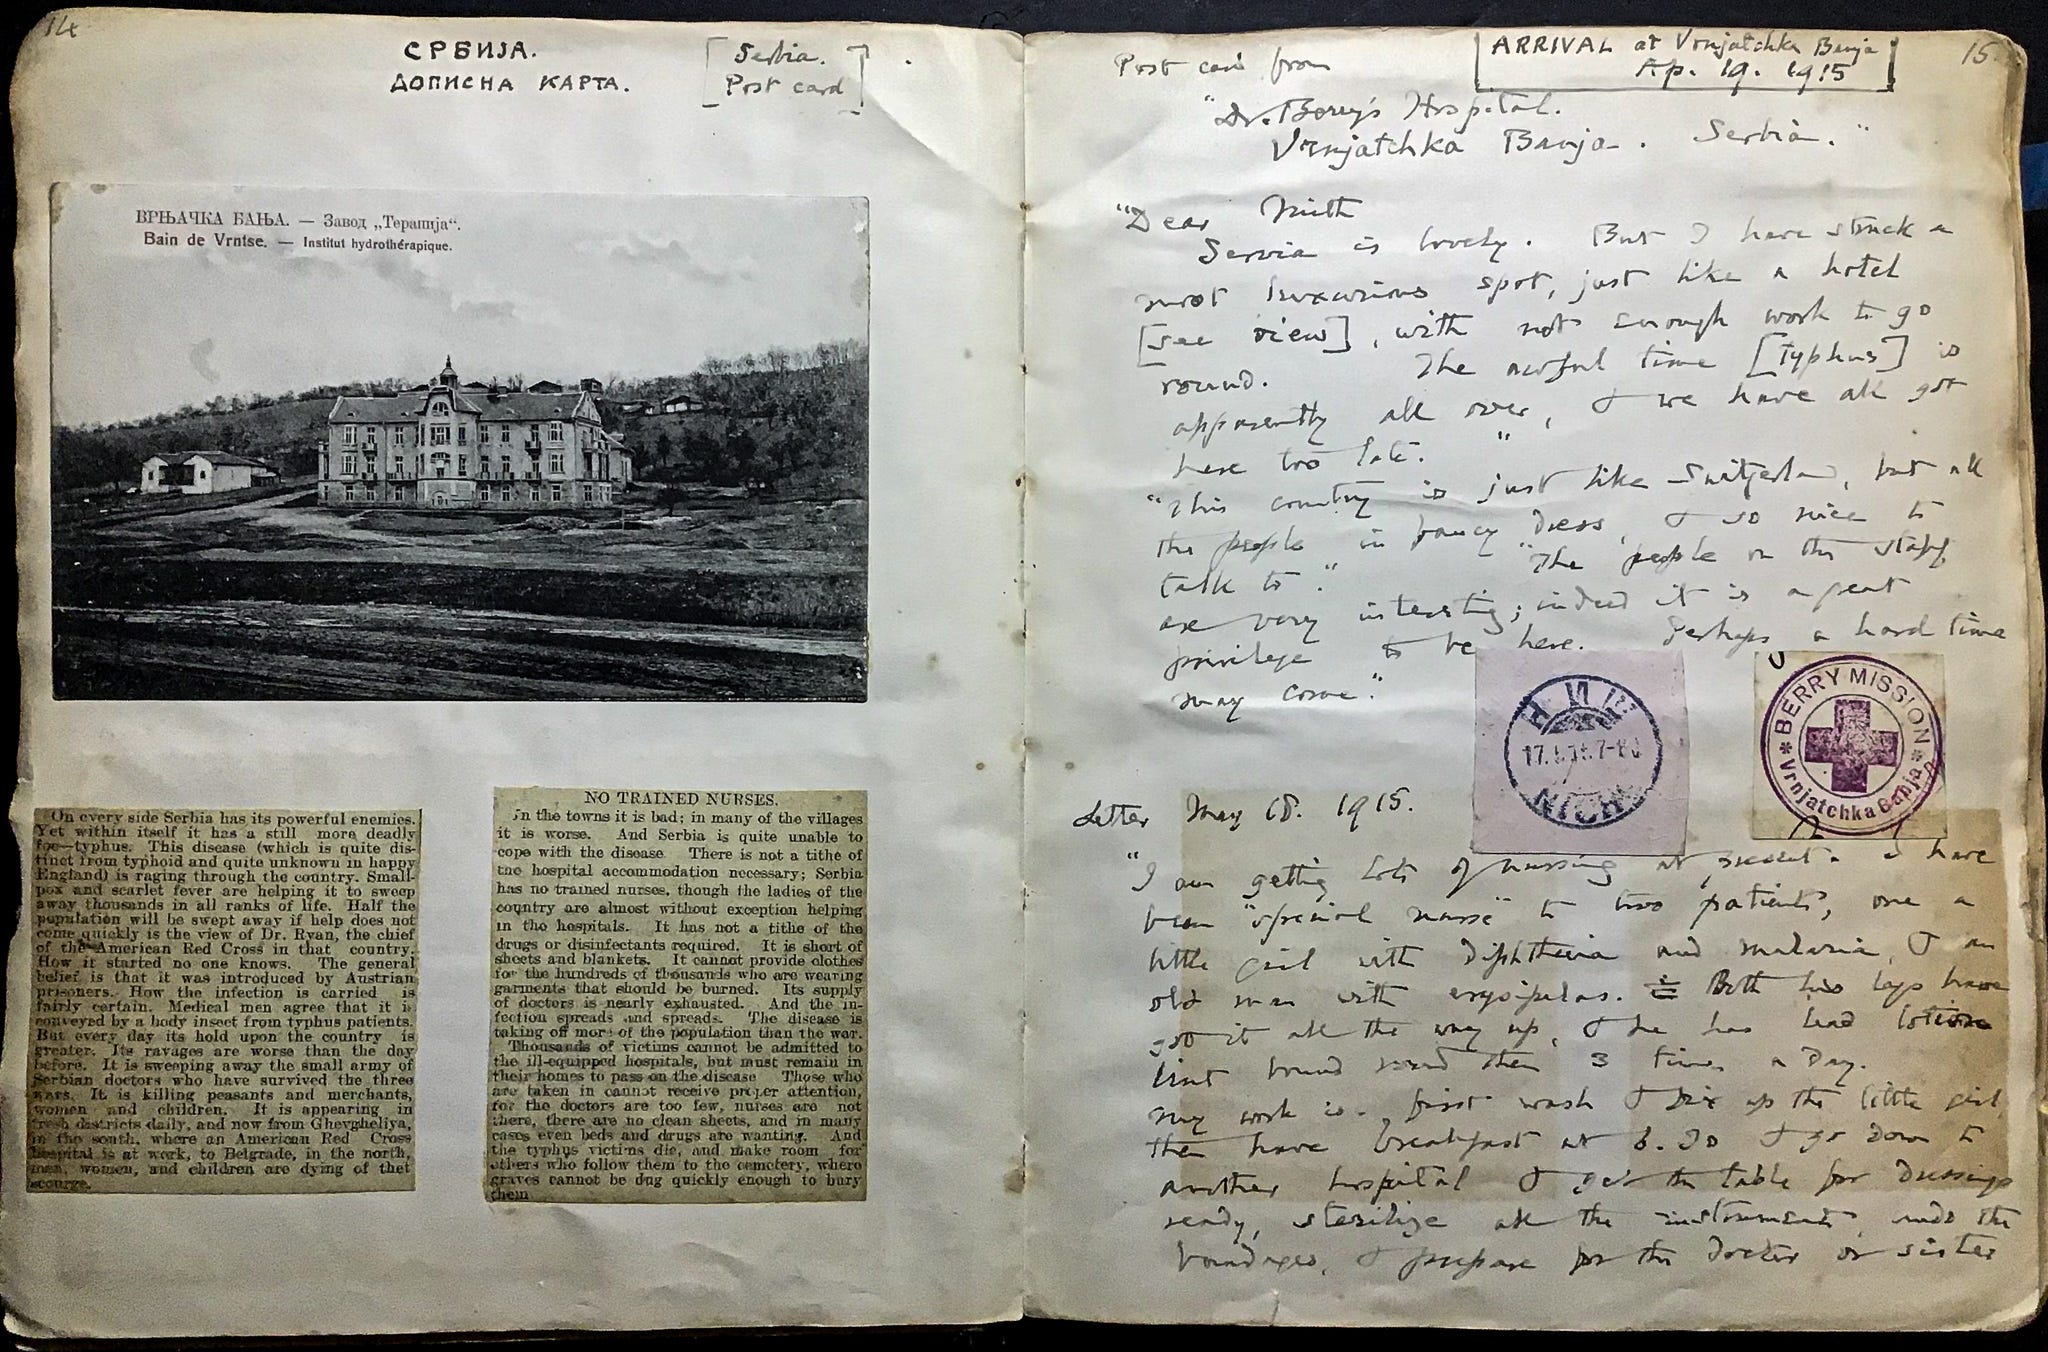 14
СРБИЈА.
ДОПИСНА КАРТА.
[Serbia.
Post card]
ВРЊАЧКА БАЊА. — Завод „Терапија“.
Bain de Vrntse. — Institut hydrothérapique.
On every side Serbia has its powerful enemies.
Yet within itself it has a still more deadly
foe—typhus. This disease (which is quite dis-
tinct from typhoid and quite unknown in happy
England) is raging through the country. Small-
pox and scarlet fever are helping it to sweep
away thousands in all ranks of life. Half the
population will be swept away if help does not
come quickly is the view of Dr. Ryan, the chief
of the American Red Cross in that country.
How it started no one knows. The general
belief is that it was introduced by Austrian
prisoners. How the infection is carried is
fairly certain. Medical men agree that it is
conveyed by a body insect from typhus patients.
But every day its hold upon the country is
greater. Its ravages are worse than the day
before. It is sweeping away the small army of
Serbian doctors who have survived the three
wars. It is killing peasants and merchants,
women and children. It is appearing in
fresh districts daily, and now from Ghevgheliya,
in the south, where an American Red Cross
hospital is at work, to Belgrade, in the north,
men, women, and children are dying of thet
scourge.
NO TRAINED NURSES.
In the towns it is bad; in many of the villages
it is worse. And Serbia is quite unable to
cope with the disease. There is not a tithe of
the hospital accommodation necessary; Serbia
has no trained nurses, though the ladies of the
country are almost without exception helping
in the hospitals. It has not a tithe of the
drugs or disinfectants required. It is short of
sheets and blankets. It cannot provide clothes
for the hundreds of thousands who are wearing
garments that should be burned. Its supply
of doctors is nearly exhausted. And the in-
fection spreads and spreads. The disease is
taking off more of the population than the war.
Thousands of victims cannot be admitted to
the ill-equipped hospitals, but must remain in
their homes to pass on the disease Those who
are taken in cannot receive proper attention,
for the doctors are too few, nurses are not
there, there are no clean sheets, and in many
cases even beds and drugs are wanting. And
the typhus victims die, and make room for
others who follow them to the cemetery, where
graves cannot be dug quickly enough to bury
them
15
Post card from
ARRIVAL at Vrnjatchka Banja
Ap. 19. 1915
"Dr. Berry's Hospital.
Vrnjatchka Banja. Serbia."
"Dear
Servia is lovely. But I have struck a
most luxurious spot, just like a hotel
[see view], with not enough work to go
round. The awful time [typhus] is
apparently all over, & we have all got
here too late."
"This country is just like Switzerland, but all
the people in fancy dress, & so nice to
talk to." "The people on the staff
are very interesting; indeed it is a great
privilege to be here. Perhaps a hard time
may come."
НИШ
NICH
BERRY MISSION
Vrnjatchka Banja
Letter May 18. 1915.
"I am getting lots of nursing at present. I have
been "special nurse" to two patients, one a
little girl with diphtheria and malaria, & an
old man with erysipelas. Both his legs have
got it all the way up, & he has lead lotion
lint bound round them 3 times a day.
my work is. first wash & fix up the little girl,
then have breakfast at 6.30 & go down to
another hospital & get the table for dressings
ready, sterilize all the instruments and the
bandages, & prepare for the doctor or sister